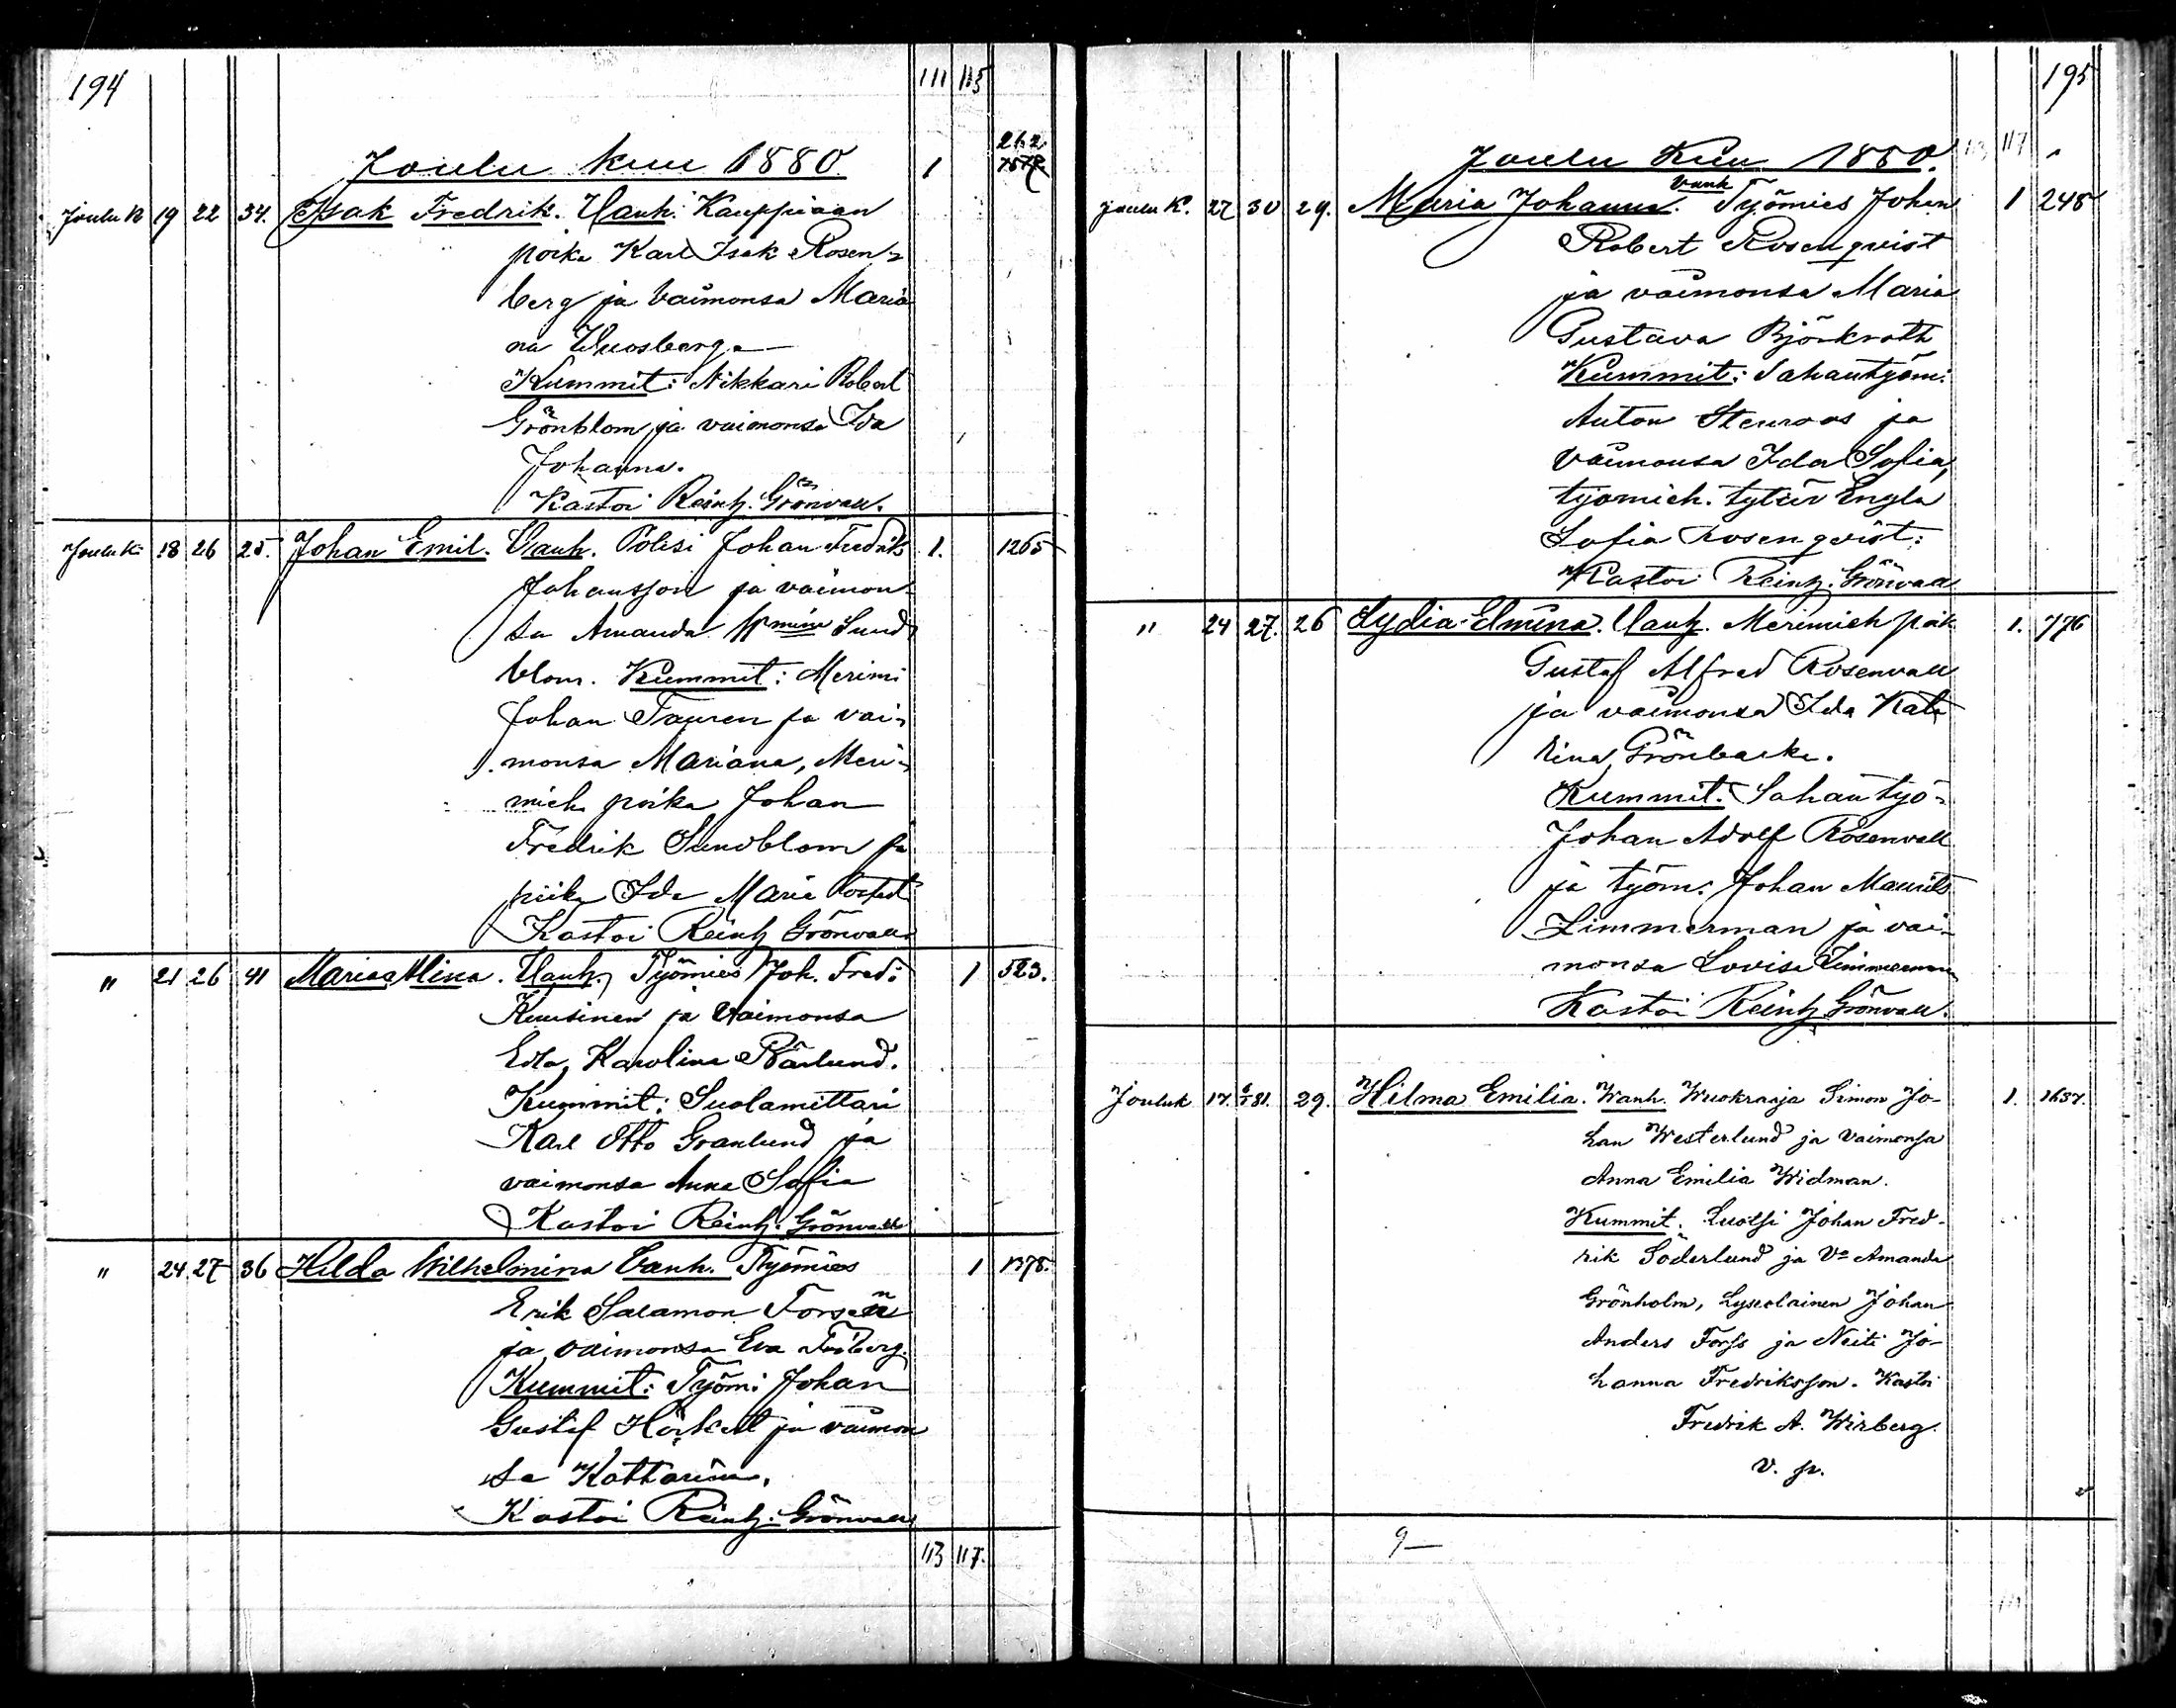 194
111 115
262
Joulu kuu 1880. 1
Joulu k 19 22 34. Isak Fredrik. Vanh: Kauppiaan
poika Karl Isak Rosen-
berg ja vaimonsa Maria
na
Kummit: Nikkari Robert
Grönblom ja vaimonsa Ida
Johanna.
Kastoi Reinh. Grönvall.
Joulu k. 18 26 25. Johan Emil. Vanh. Polisi Johan Fredrik 1. 1265
Johansson ja vaimon-
sa Amanda Wmina Sund
blom. Kummit: Merimi
Johan ja vai-
monsa Mariana, Meri-
mieh. poika Johan
Fredrik Sundblom ja
piika Ida Maria
Kastoi Reinh Grönvall
" 21 26 41 Maria Alina. Vanh. Työmies Joh. Fred: 1 523.
Kuusinen ja vaimonsa
Edla Karolina Bärlund.
Kummit: Suolamittari
Karl Otto Granlund ja
vaimonsa Anna Sofia
Kastoi Reinh. Grönvall
" 24 27 36 Hilda Wilhelmina Vanh. Työmies 1 1378.
Erik Salamon
ja vaimonsa Eva Friberg.
Kummit: Työmi Johan
Gustaf ja vaimon
sa Kattarina.
Kastoi Reinh. Grönvall
113 117.
195
Joulu Kuu 1880. 113 117
Joulu K. 27 30 29. Maria Johanna. Vanh Työmies Johan 1 248
Robert Rosenqvist
ja vaimonsa Maria
Gustava Björkroth
Kummit: Sahantyömi:
Anton Stenroos ja
vaimonsa Ida Sofia,
työmieh. tytär Engla
Sofia Rosenqvist.
Kastoi Reinh. Grönvall
" 24 27. 26 Lydia Elmina. Vanh. Merimieh poik 1. 776
Gustaf Alfred Rosenvall
ja vaimonsa Ida Kata
rina Grönbacka.
Kummit. Sahantyö-
Johan Adolf Rosenvall
ja työm. Johan Maurits
Zimmerman ja vai-
monsa Lovisa Zimmerman
Kastoi Reinh Grönvall.
Jouluk 17. 6/1 81. 29. Hilma Emilia. Wanh. Wuokraaja Simon Jo- 1. 1637.
han Westerlund ja vaimonsa
Anna Emilia Widman.
Kummit. Luotsi Johan Fred-
rik Söderlund ja Vo Amanda
Grönholm, Lyseolainen Johan
Anders Forss ja Neiti Jo-
hanna Fredriksson. Kastoi
Fredrik A. Wirberg.
v. p.
9